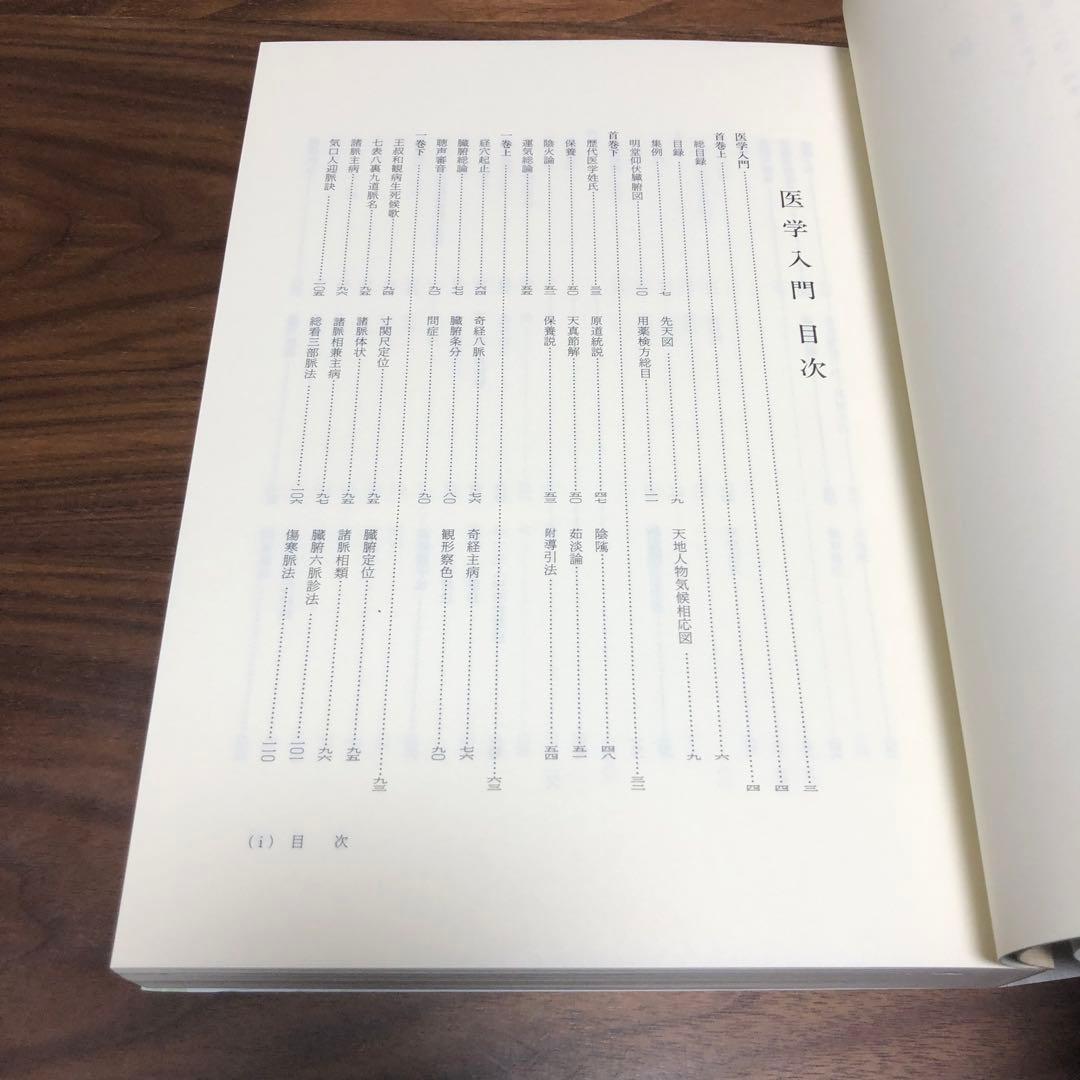 医学入門 目次
医学入門……三
首巻上……四
総目録……四
目録……六
集例……七 先天図……九 天地人物気候相応図……九
明堂仰伏臓腑図……一〇 用薬検方総目……一一
首巻下……三二
歴代医学姓氏……三三 原道統説……四七 陰隲……四八
保養……五〇 天真節解……五〇 茹淡論……五一
陰火論……五二 保養説……五三 附導引法……五四
運気総論……五五
一巻上……六三
経穴起止……六四 奇経八脈……七六 奇経主病……七六
臓腑総論……七七 臓腑条分……八〇 観形察色……九〇
聴声審音……九〇 問症……九〇
一巻下……九三
王叔和観病生死候歌……九四 寸関尺定位……九五 臓腑定位……九五
七表八裏九道脈名……九五 諸脈体状……九五 諸脈相類……九六
諸脈主病……九六 諸脈相兼主病……九七 臓腑六脈診法……一〇一
気口人迎脈訣……一〇五 総看三部脈法……一〇六 傷寒脈法……一一〇
(i) 目 次